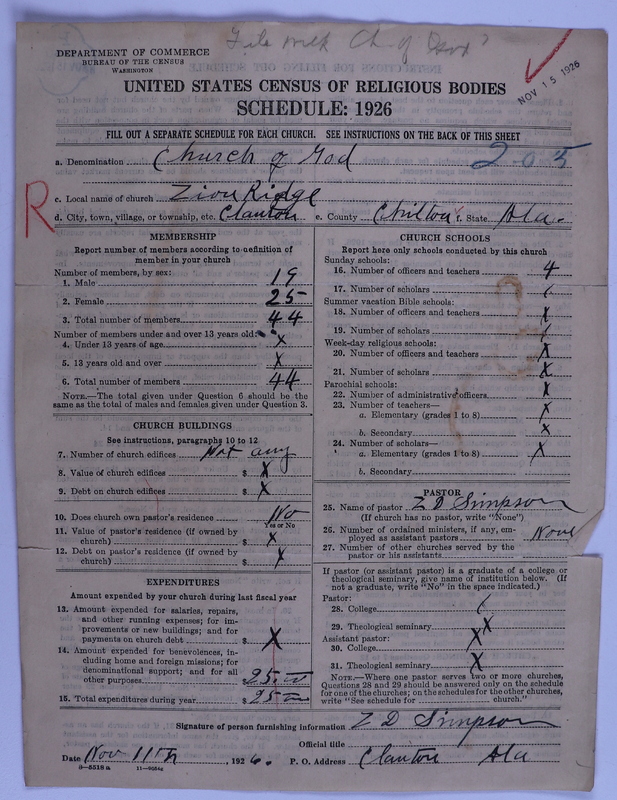 DEPARTMENT OF COMMERCE
BUREAU OF THE CENSUS
WASHINGTON
NOV 15 1926
UNITED STATES CENSUS OF RELIGIOUS BODIES
SCHEDULE: 1926
FILL OUT A SEPARATE SCHEDULE FOR EACH CHURCH. SEE INSTRUCTIONS ON THE BACK OF THIS SHEET
a. Denomination Church of God 205
c. Local name of church Zion Ridge
R
d. City, town, village, or township, etc. Clanton e. County Chilton f. State Ala.
MEMBERSHIP
Report number of members according to definition of
member in your church
Number of members, by sex:
1. Male 19
2. Female 25
3. Total number of members 44
Number of members under and over 13 years old:
4. Under 13 years of age X
5. 13 years old and over X
6. Total number of members 44
NOTE.—The total given under Question 6 should be the
same as the total of males and females given under Question 3.
CHURCH BUILDINGS
See instructions, paragraphs 10 to 12
7. Number of church edifices Not any
8. Value of church edifices $ X
9. Debt on church edifices $ X
10. Does church own pastor's residence No
Yes or No
11. Value of pastor's residence (if owned by
church) $ X
12. Debt on pastor's residence (if owned by
church) $ X
EXPENDITURES
Amount expended by your church during last fiscal year
13. Amount expended for salaries, repairs,
and other running expenses; for im-
provements or new buildings; and for
payments on church debt $ X
14. Amount expended for benevolences, in-
cluding home and foreign missions; for
denominational support; and for all
other purposes 25.00
15. Total expenditures during year $ 25.00
CHURCH SCHOOLS
Report here only schools conducted by this church
Sunday schools:
16. Number of officers and teachers 4
17. Number of scholars
Summer vacation Bible schools:
18. Number of officers and teachers X
19. Number of scholars
Week-day religious schools:
20. Number of officers and teachers X
21. Number of scholars X
Parochial schools:
22. Number of administrative officers X
23. Number of teachers—
a. Elementary (grades 1 to 8) X
b. Secondary X
24. Number of scholars—
a. Elementary (grades 1 to 8) X
b. Secondary
PASTOR
25. Name of pastor Z D Simpson
(If church has no pastor, write "None")
26. Number of ordained ministers, if any, em-
ployed as assistant pastors None
27. Number of other churches served by the
pastor or his assistants
If pastor (or assistant pastor) is a graduate of a college or
theological seminary, give name of institution below. (If
not a graduate, write "No" in the space indicated.)
Pastor:
28. College
29. Theological seminary X
Assistant pastor:
30. College X
31. Theological seminary X
NOTE.—Where one pastor serves two or more churches,
Questions 28 and 29 should be answered only on the schedule
for one of the churches; on the schedules for the other churches,
write "See schedule for church."
Signature of person furnishing information Z D Simpson
Official title
Date Nov 11th, 1926. P. O. Address Clanton Ala
8—5518 a 11—9054c